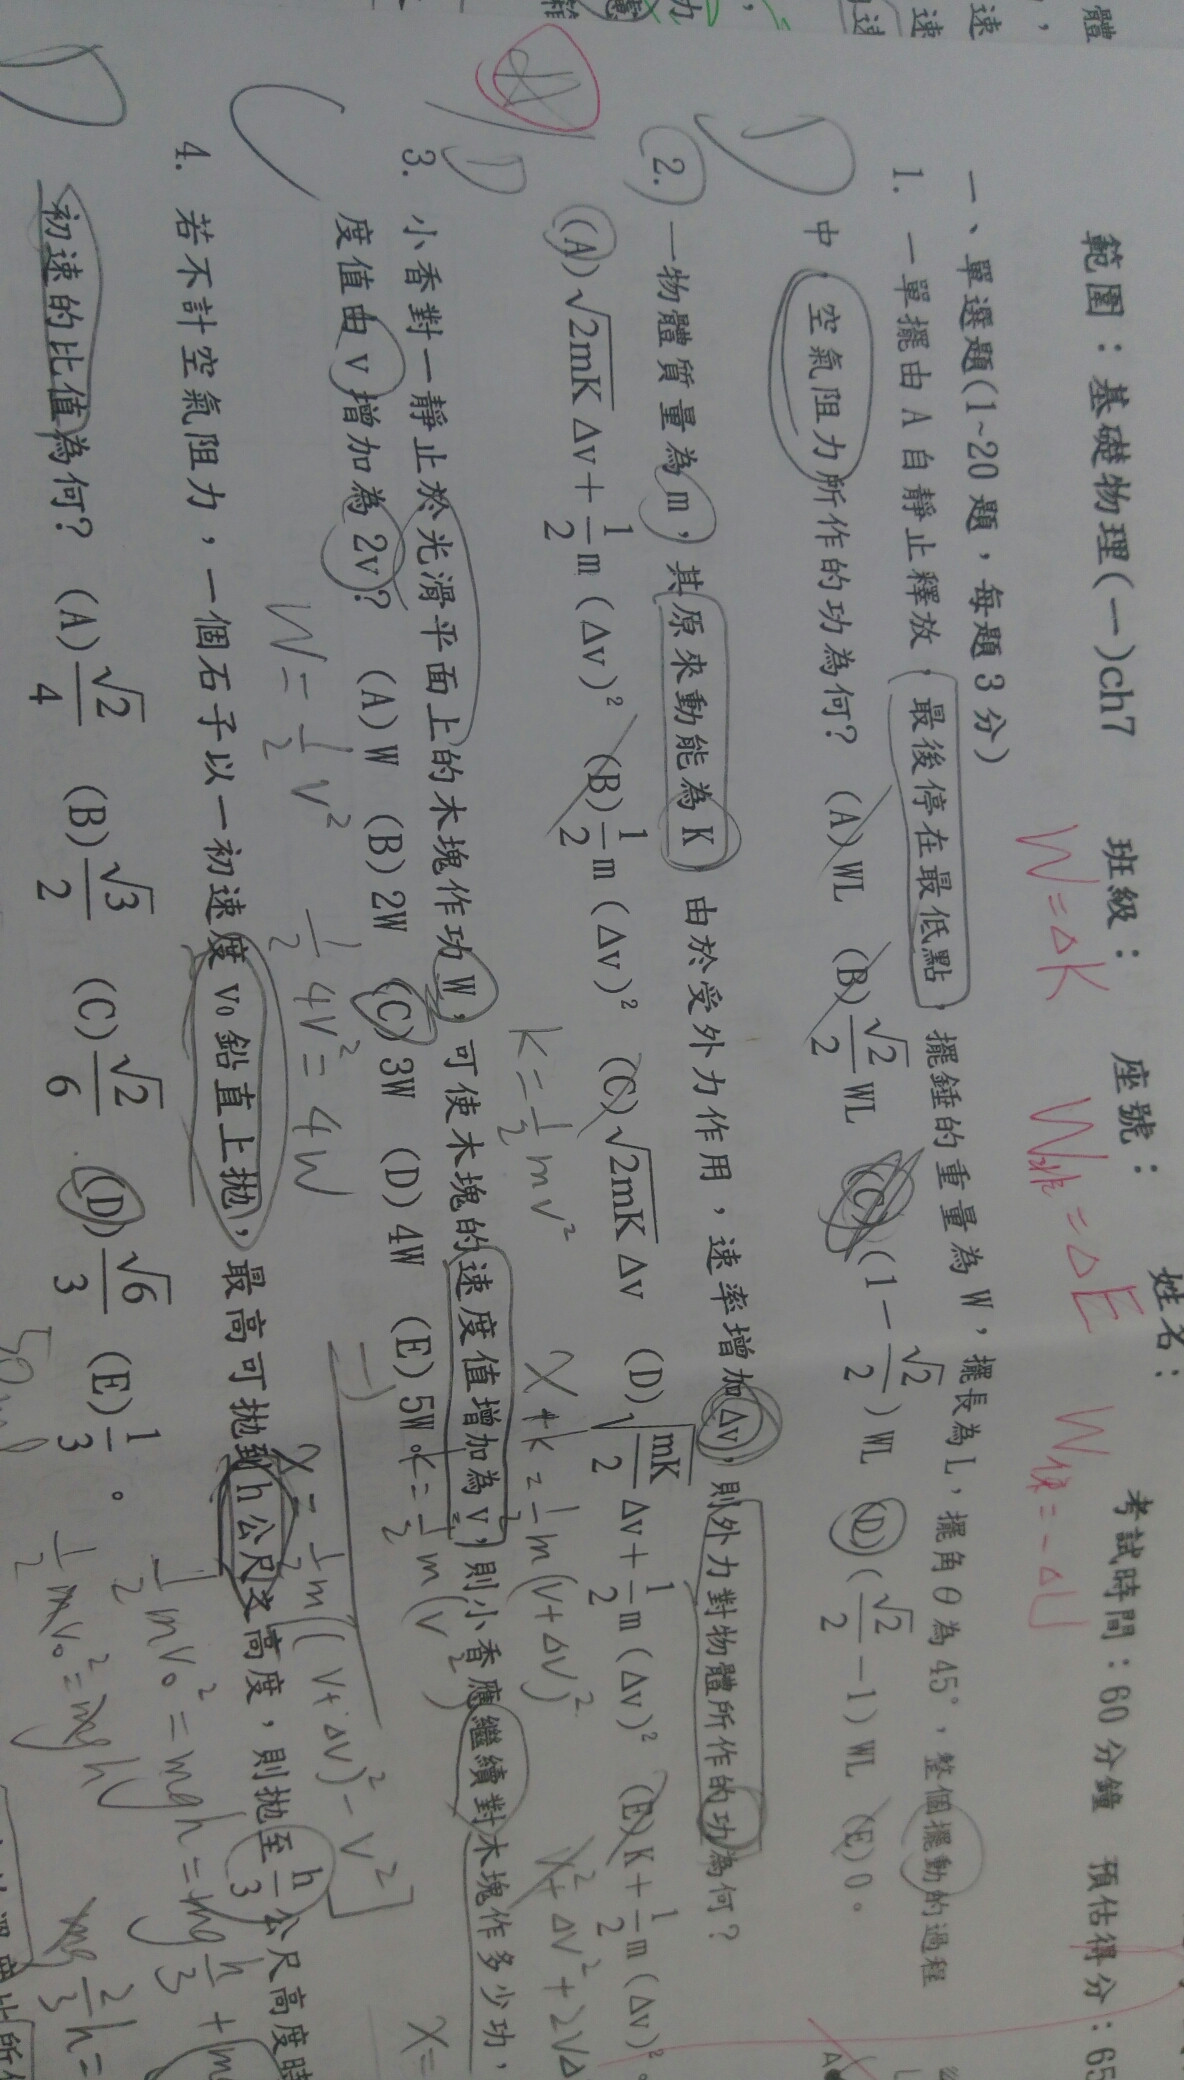 範圍：基礎物理(一)ch7 班級： 座號： 姓名： 考試時間：60分鐘 預估得分：65
W=ΔK W非=ΔE W保=-ΔU
一、單選題(1~20題，每題3分)
1. 一單擺由A自靜止釋放，最後停在最低點，擺錘的重量為W，擺長為L，擺角θ為45°，整個擺動的過程
中，空氣阻力所作的功為何？ (A)WL (B)√2/2 WL (C)(1-√2/2)WL (D)(√2/2-1)WL (E)0。
D
2. 一物體質量為m，其原來動能為K，由於受外力作用，速率增加Δv，則外力對物體所作的功為何？
(A)√2mK Δv+1/2 m(Δv)² (B)1/2 m(Δv)² (C)√2mK Δv (D)√mK/2 Δv+1/2 m(Δv)² (E)K+1/2 m(Δv)²。
A
D
K=1/2 mv² X+K=1/2 m(v+Δv)²
3. 小香對一靜止於光滑平面上的木塊作功W，可使木塊的速度值增加為v，則小香應繼續對木塊作多少功，
度值由v增加為2v？ (A)W (B)2W (C)3W (D)4W (E)5W。
W=1/2 v² 1/2 4v²=4W
4. 若不計空氣阻力，一個石子以一初速度v₀鉛直上拋，最高可拋到h公尺之高度，則拋至h/3公尺高度時
初速的比值為何？ (A)√2/4 (B)√3/2 (C)√2/6 (D)√6/3 (E)1/3。
D
1/2 mv₀²=mgh=mg h/3+
1/2 mv₀²=mgh
mg 2/3 h=